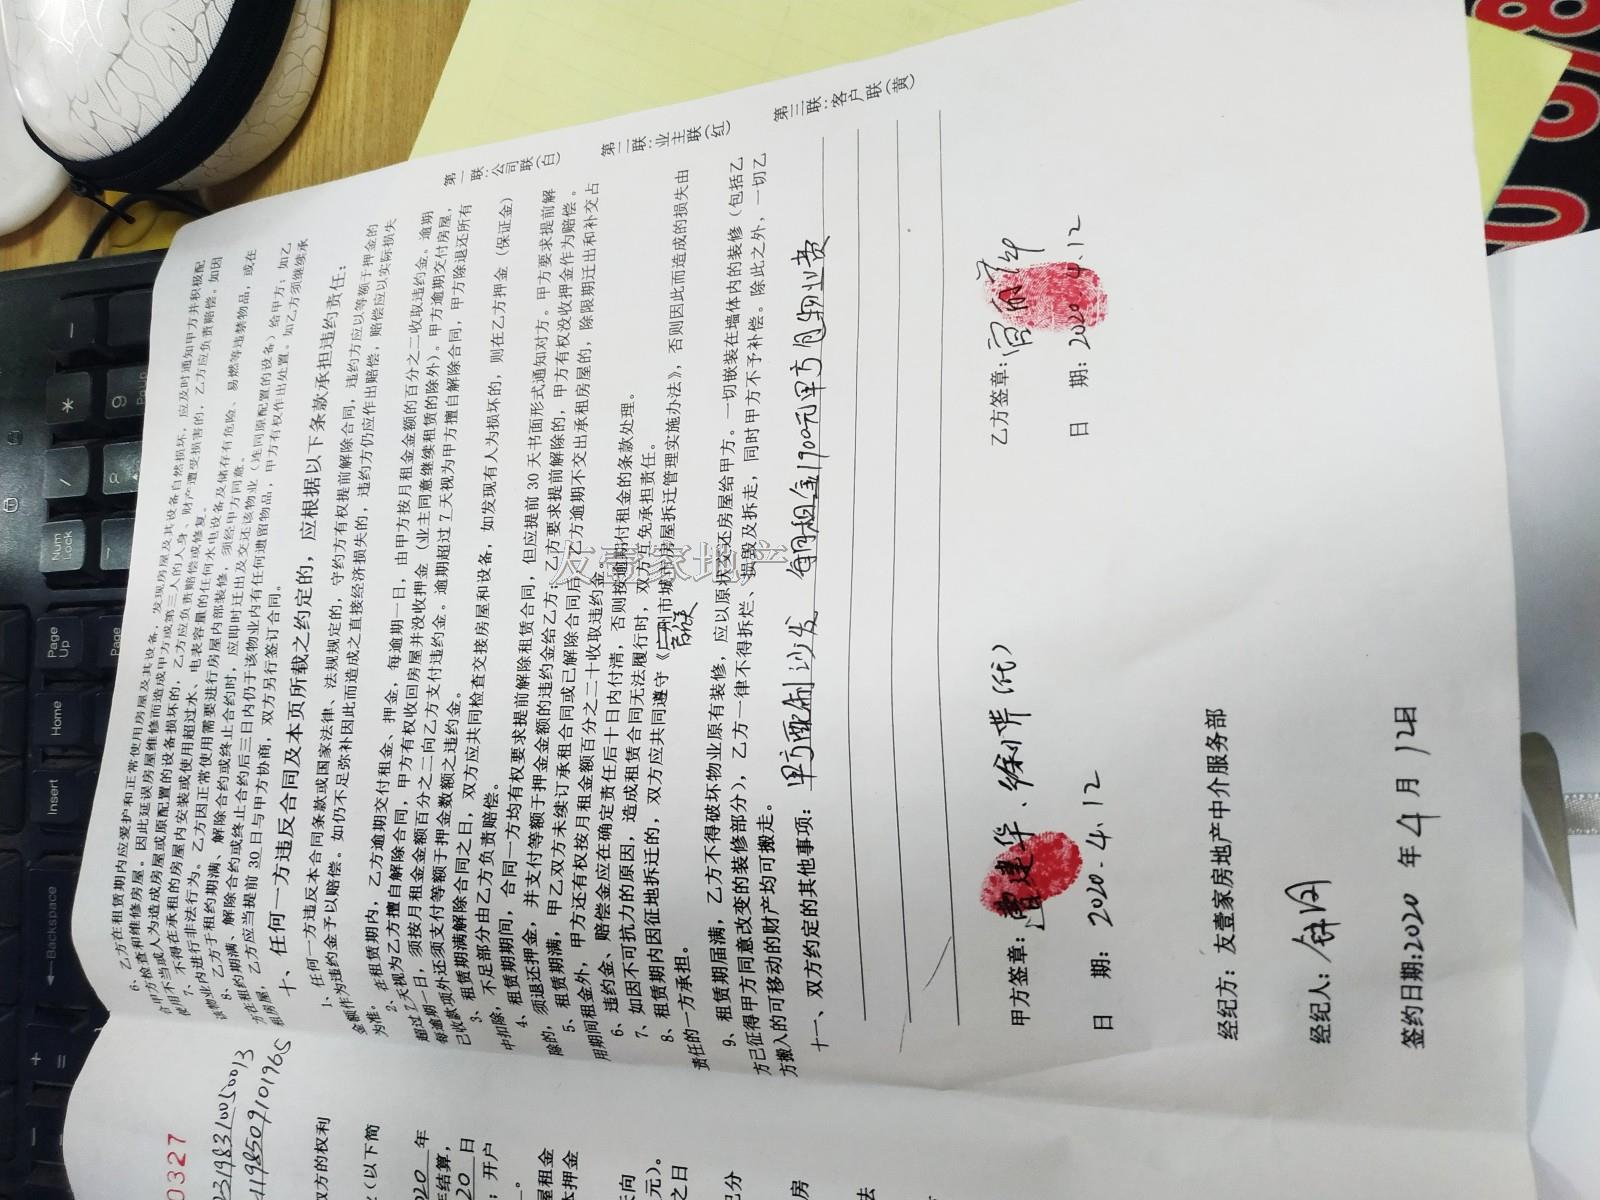 6、乙方在租赁期内应爱护和正常使用房屋及其设备，发现房屋及其设备自然损坏，应及时通知甲方并积极配
合甲方检查和维修房屋。因此延误房屋维修而造成甲方或第三人的人身、财产遭受损害的，乙方应负责赔偿。如因
使用不当或人为造成房屋或原配置的设备损坏的，乙方应负责赔偿或修复。
7、不得在承租的房屋内安装或使用超过水、电表容量的任何水电设备及储存有危险、易燃等违禁物品，或在
该物业内进行非法行为。乙方因正常使用需要进行房屋内部装修，须经甲方同意。
8、乙方于租约期满、解除合约或终止合约时，应即时迁出及交还该物业（连同原配置的设备）给甲方；如乙
方在租约期满、解除合约或终止合约后三日内仍于该物业内有任何遗留物品，甲方有权作出处置。如乙方须继续承
租房屋，乙方应当提前30日与甲方协商，双方另行签订合同。
十、任何一方违反合同及本页所载之约定的，应根据以下条款承担违约责任：
1、任何一方违反本合同条款或国家法律、法规规定的，守约方有权提前解除合同，违约方应以等额于押金的
金额作为违约金予以赔偿。如仍不足弥补因此而造成之直接经济损失的，违约方仍应作出赔偿，赔偿应以实际损失
为准。
2、在租赁期内，乙方逾期交付租金、押金，每逾期一日，由甲方按月租金金额的百分之二收取违约金。逾期
超过7天视为乙方擅自解除合同，甲方有权收回房屋并没收押金（业主同意继续租赁的除外）。甲方逾期交付房屋，
每逾期一日，须按月租金金额百分之二向乙方支付违约金。逾期超过7天视为甲方擅自解除合同，甲方除退还所有
已收款项外还须支付等额于押金数额之违约金。
3、租赁期满解除合同之日，双方应共同检查交接房屋和设备，如发现有人为损坏的，则在乙方押金（保证金）
中扣除，不足部分由乙方负责赔偿。
4、租赁期间，合同一方均有权要求提前解除租赁合同，但应提前30天书面形式通知对方。甲方要求提前解
除的，须退还押金，并支付等额于押金金额的违约金给乙方；乙方要求提前解除的，甲方有权没收押金作为赔偿。
5、租赁期满，甲乙双方未续订承租合同或已解除合同后，乙方逾期不交出承租房屋的，除限期迁出和补交占
用期间租金外，甲方还有权按月租金额百分之二十收取违约金。
6、违约金、赔偿金应在确定责任后十日内付清，否则按逾期付租金的条款处理。
7、如因不可抗力的原因，造成租赁合同无法履行时，双方互免承担责任。
8、租赁期内因征地拆迁的，双方应共同遵守《市城市房屋拆迁管理实施办法》，否则因此而造成的损失由
责任的一方承担。
9、租赁期届满，乙方不得破坏物业原有装修，应以原状交还房屋给甲方。一切嵌装在墙体内的装修（包括乙
方已征得甲方同意改变的装修部分），乙方一律不得拆烂、损毁及拆走，同时甲方不予补偿。除此之外，一切乙
方搬入的可移动的财产均可搬走。
十一、双方约定的其他事项：甲方配制沙发 每月租金1900元甲方包物业费
甲方签章：曾建华·徐利芳(代)
乙方签章：
日 期：2020.4.12
日 期：2020.4.12
经纪方：友壹家房地产中介服务部
经纪人：
签约日期:2020年4月12日
第一联：公司联（白）
第二联：业主联（红）
第三联：客户联（黄）
友壹家地产
0327
23198310050013
双方的权利
（以下简
年
年结算，
20日
；开户
屋租金
本押金
元)。
之日
房
法
Num Lock
/
*
-
9
PgUp
Page Up
Home
Insert
Backspace
+
=
Page